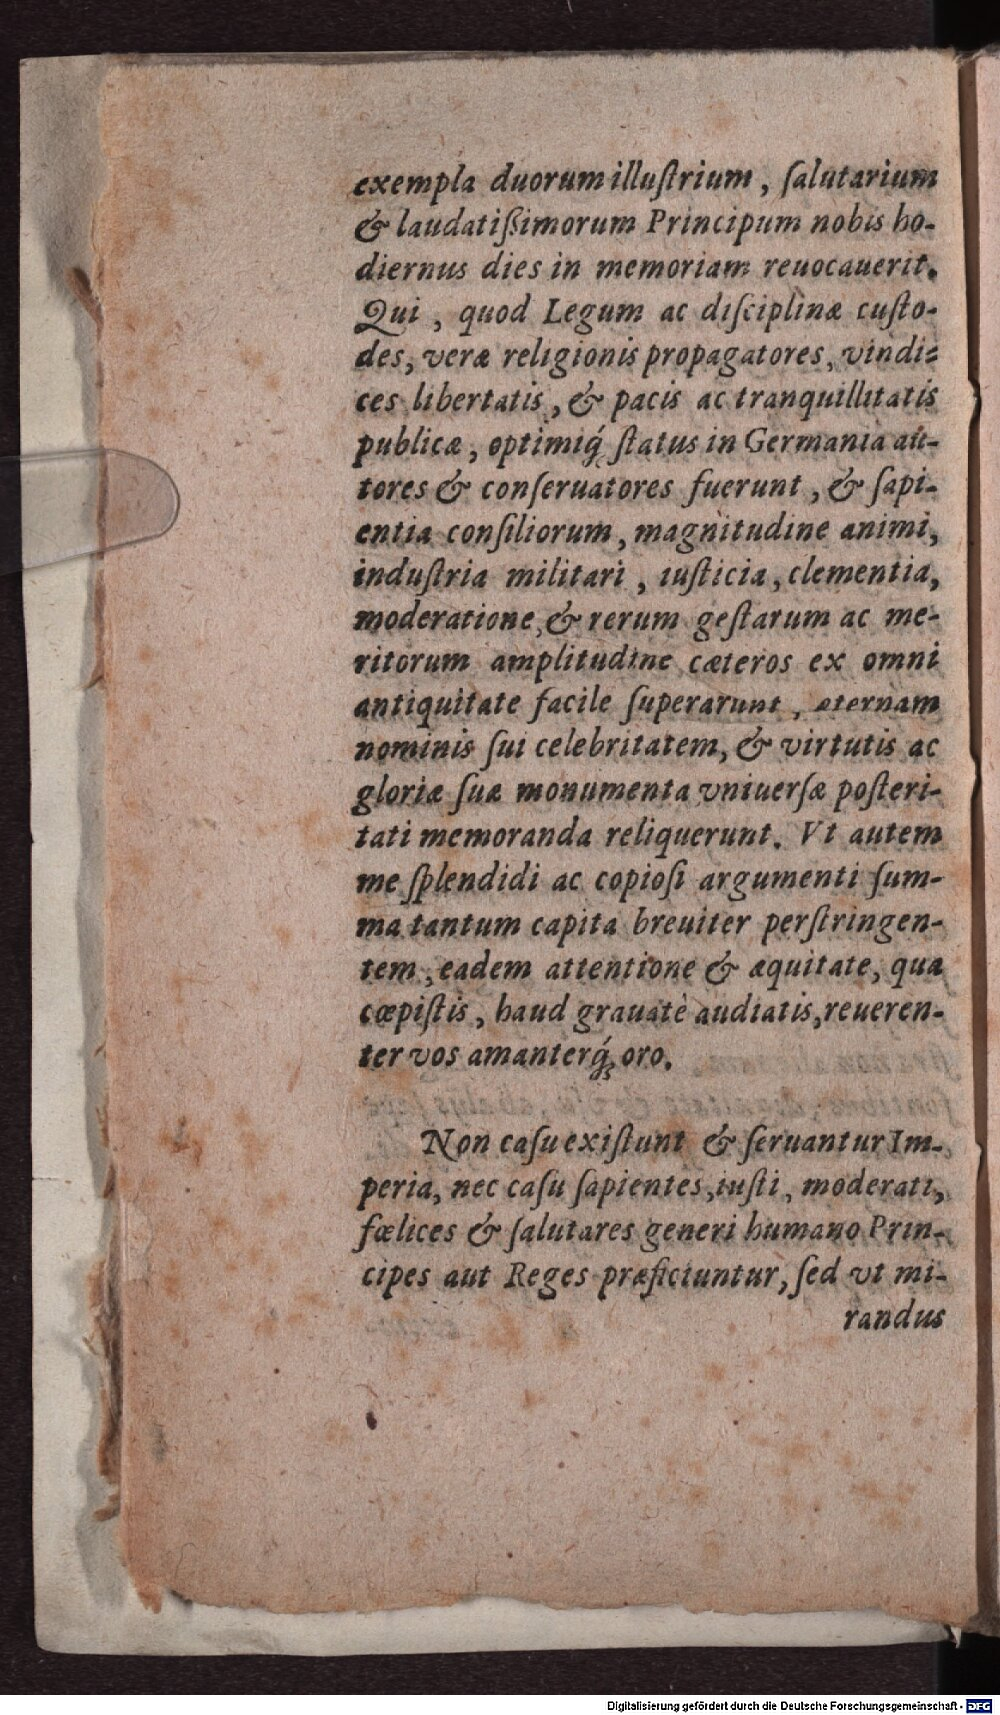 exempla duorum illuſtrium, ſalutarium
& laudatiſsimorum Principum nobis ho-
diernus dies in memoriam reuocauerit.
Qui, quod Legum ac diſciplinæ cuſto-
des, veræ religionis propagatores, vindi-
ces libertatis, & pacis ac tranquillitatis
publicæ, optimiq́; ſtatus in Germania au-
tores & conſeruatores fuerunt, & ſapi-
entia conſiliorum, magnitudine animi,
induſtria militari, iuſticia, clementia,
moderatione, & rerum geſtarum ac me-
ritorum amplitudine cæteros ex omni
antiquitate facile ſuperarunt, æternam
nominis ſui celebritatem, & virtutis ac
gloriæ ſuæ monumenta vniuerſæ poſteri-
tati memoranda reliquerunt. Vt autem
me ſplendidi ac copioſi argumenti ſum-
ma tantum capita breuiter perſtringen-
tem, eadem attentione & æquitate, qua
cœpiſtis, haud grauatè audiatis, reueren-
ter vos amanterq́; oro.
Non caſu exiſtunt & ſeruantur Im-
peria, nec caſu ſapientes, iuſti, moderati,
fœlices & ſalutares generi humano Prin-
cipes aut Reges præficiuntur, ſed vt mi-
randus
Digitalisierung gefördert durch die Deutsche Forschungsgemeinschaft - DFG